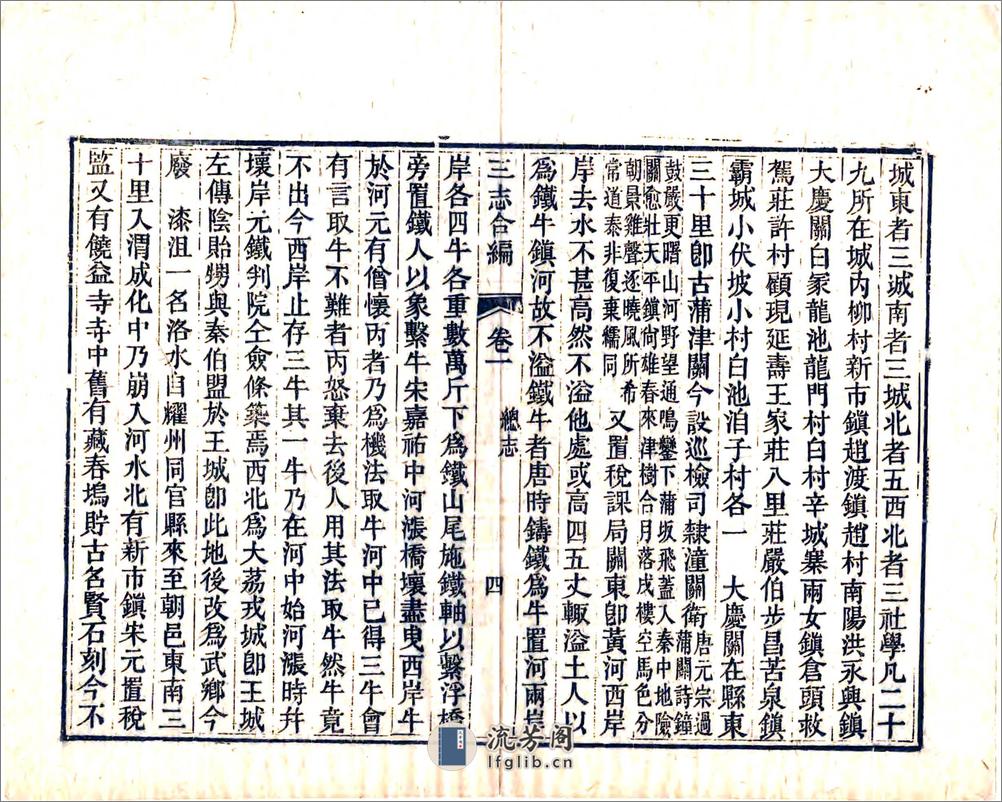 城東者三城南者三城北者五西北者三社學凡二十
九所在城內柳村新市鎮趙渡鎮趙村南陽洪永興鎮
大慶關白家龍池龍門村白村辛城寨兩女鎮倉頭救
駕莊許村顧現延壽王家莊八里莊嚴伯步昌苦泉鎮
霸城小伏坡小村白池洎子村各一　大慶關在縣東
三十里卽古蒲津關今設巡檢司隸潼關衛唐元宗過
蒲關詩鐘
鼓嚴更曙山河野望通鳴鑾下蒲坂飛蓋入秦中地險
關愈壯天平鎮尚雄春來津樹合月落戍樓空馬色分
朝景雞聲逐曉風所希
常道泰非復棄繻同　又置稅課局關東卽黃河西岸
岸去水不甚高然不溢他處或高四五丈輒溢土人以
爲鐵牛鎮河故不溢鐵牛者唐時鑄鐵爲牛置河兩岸
三志合編　卷一　總志　四
岸各四牛各重數萬斤下爲鐵山尾施鐵軸以繫浮橋
旁置鐵人以象繫牛宋嘉祐中河漲橋壞盡曳西岸牛
於河元有僧懷丙者乃爲機法取牛河中已得三牛會
有言取牛不難者丙怒棄去後人用其法取牛然牛竟
不出今西岸止存三牛其一牛乃在河中始河漲時幷
壞岸元鐵判院仝僉條築焉西北爲大荔戎城卽王城
左傳陰貽甥與秦伯盟於王城卽此地後改爲武鄉今
廢　漆沮一名洛水自耀州同官縣來至朝邑東南三
十里入渭成化中乃崩入河水北有新市鎮宋元置稅
監又有饒益寺寺中舊有藏春塢貯古名賢石刻今不
流芳阁
lfglib.cn